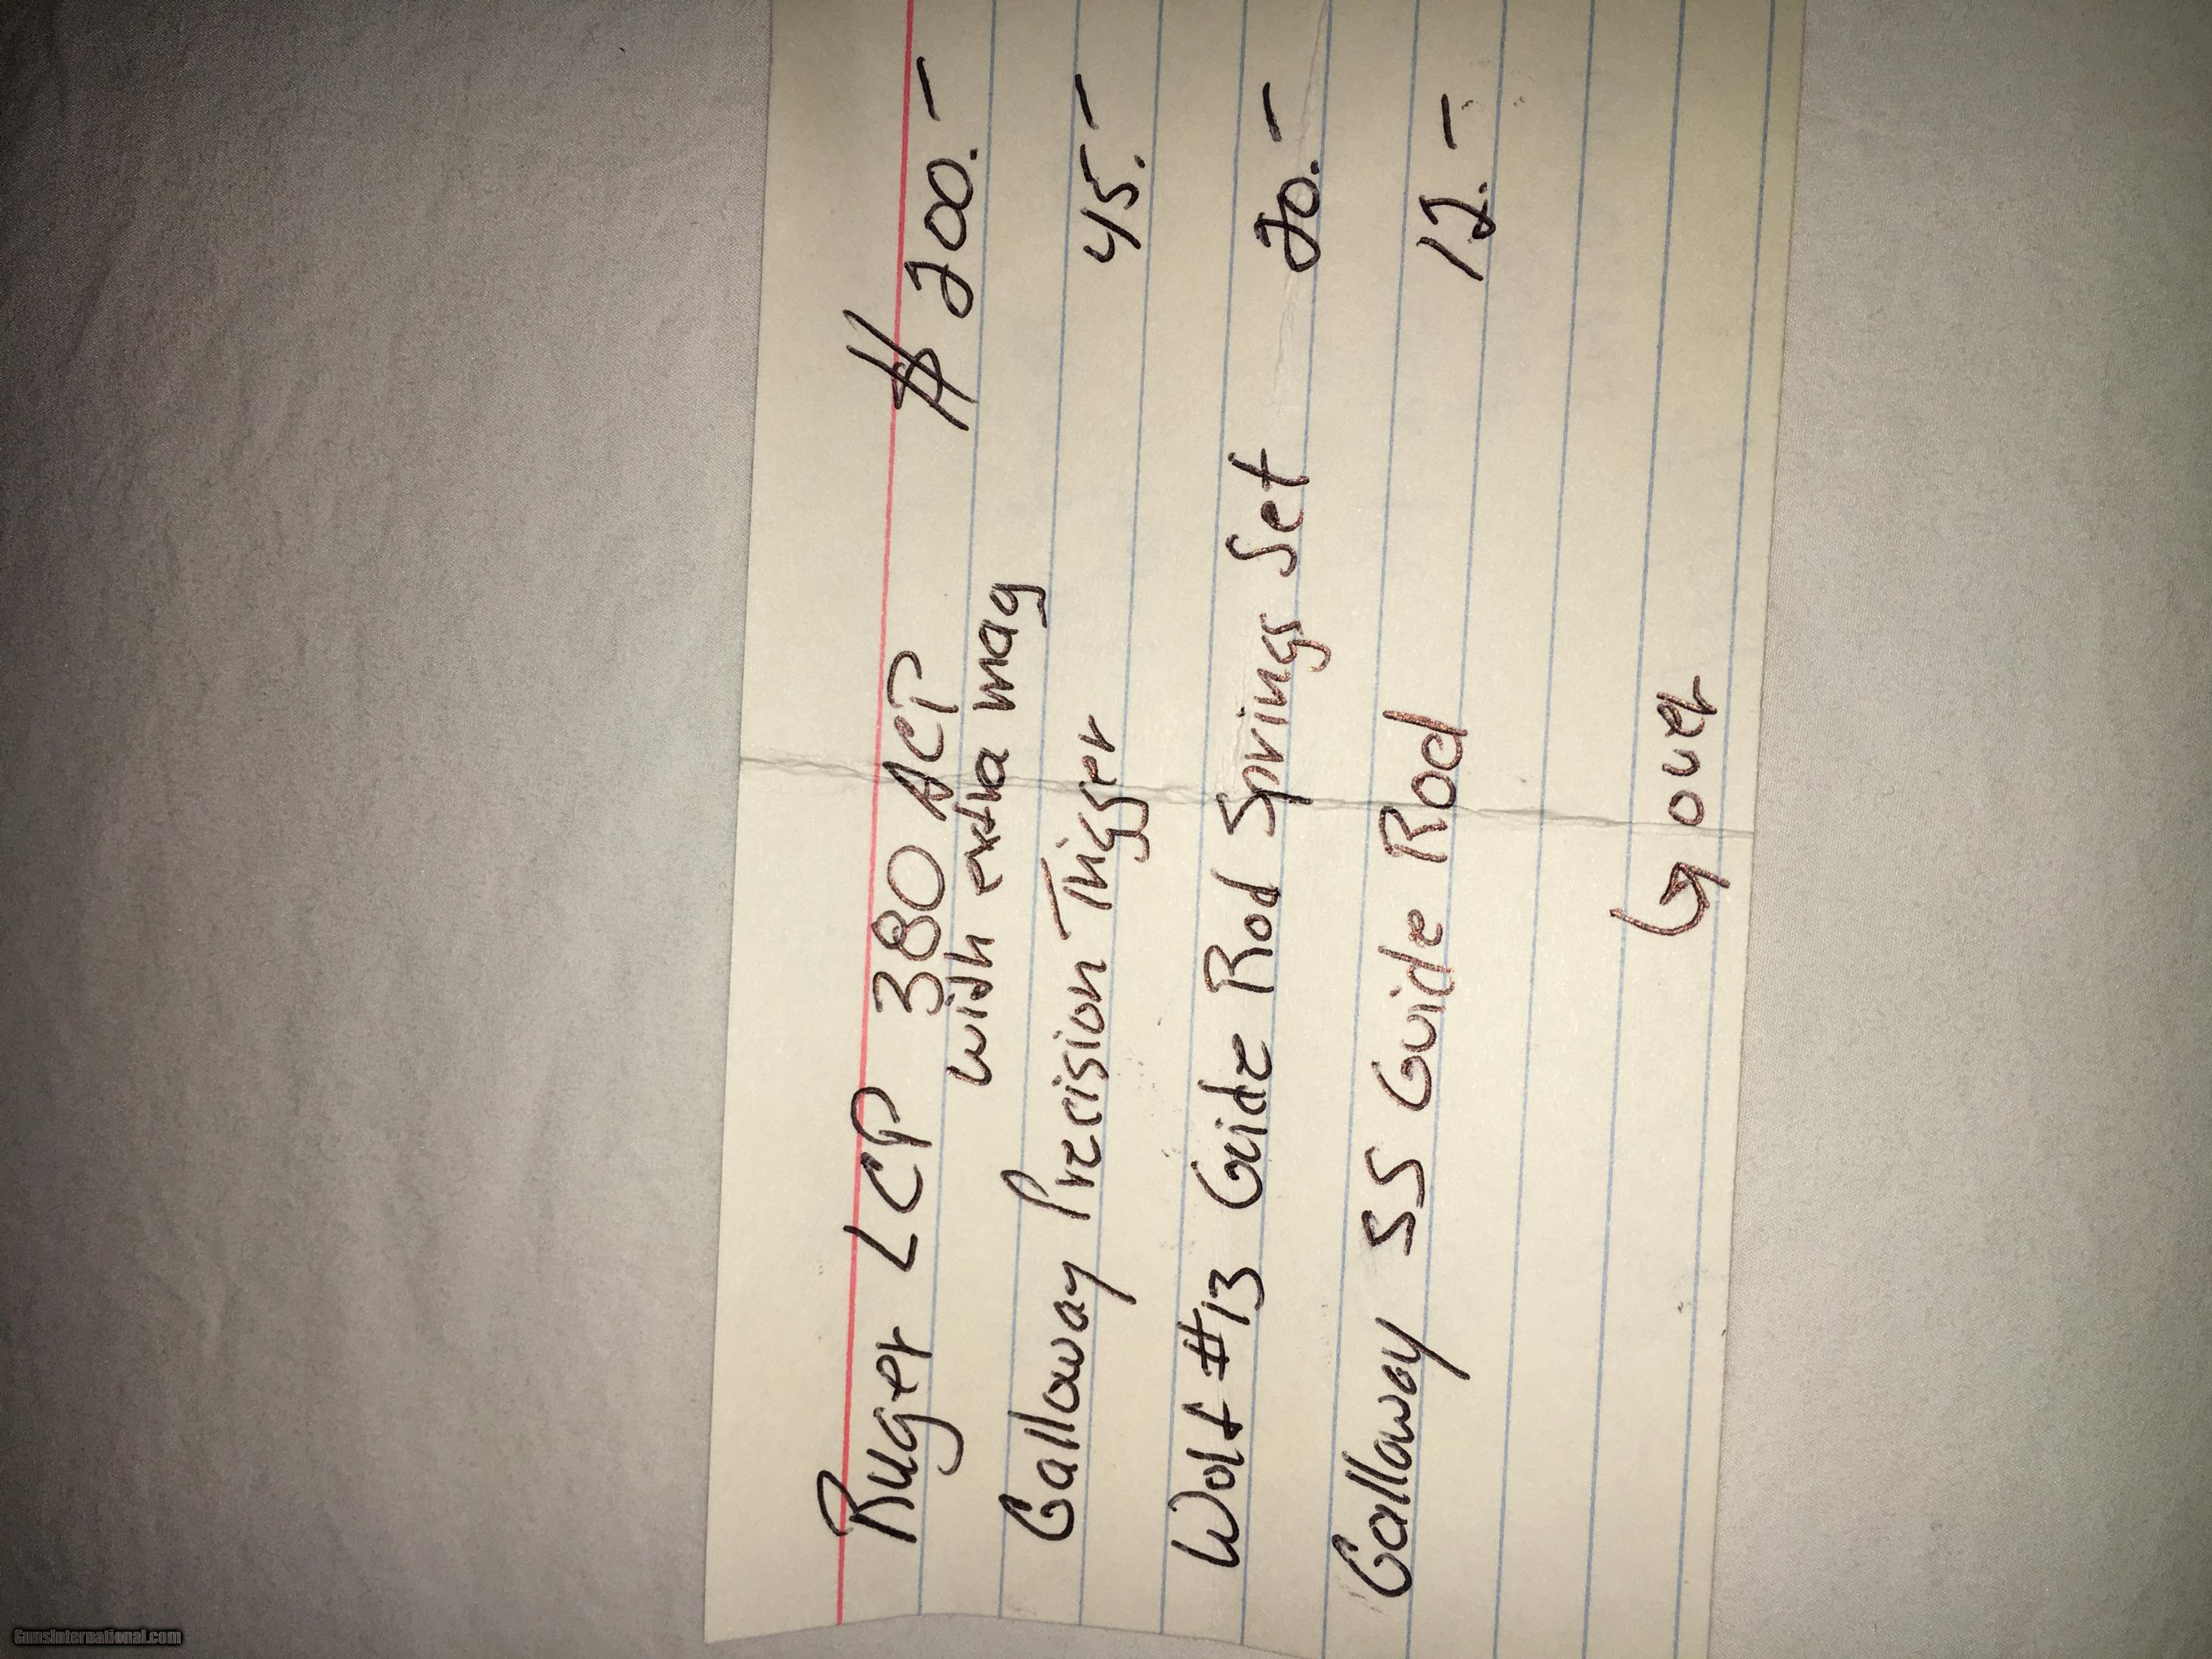 Ruger LCP 380 ACP $200.-
with extra mag
Galloway Precision Trigger 45.-
Wolf #13 Guide Rod Springs Set 20.-
Galloway SS Guide Rod 12.-
↳ over
GunsInternational.com